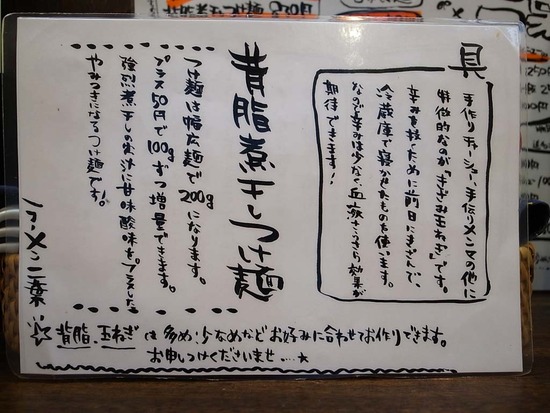 具
手作りチャーシュー、手作りメンマの他に
特徴的なのが「きざみ玉ねぎ」です。
辛みを抜くために前日にきざんで、
冷蔵庫で寝かせたものを使います。
なので辛みは少なく、血液さらさら効果が
期待できます!
背脂煮干しつけ麺
つけ麺は幅広麺で200gになります。
プラス50円で100gずつ増量できます。
強烈煮干しの実汁に甘味酸味をプラスした
やみつきになるつけ麺です。
ラーメン二葉
☆背脂、玉ねぎは多め・少なめなどお好みに合わせてお作りできます。
お申しつけくださいませ…★